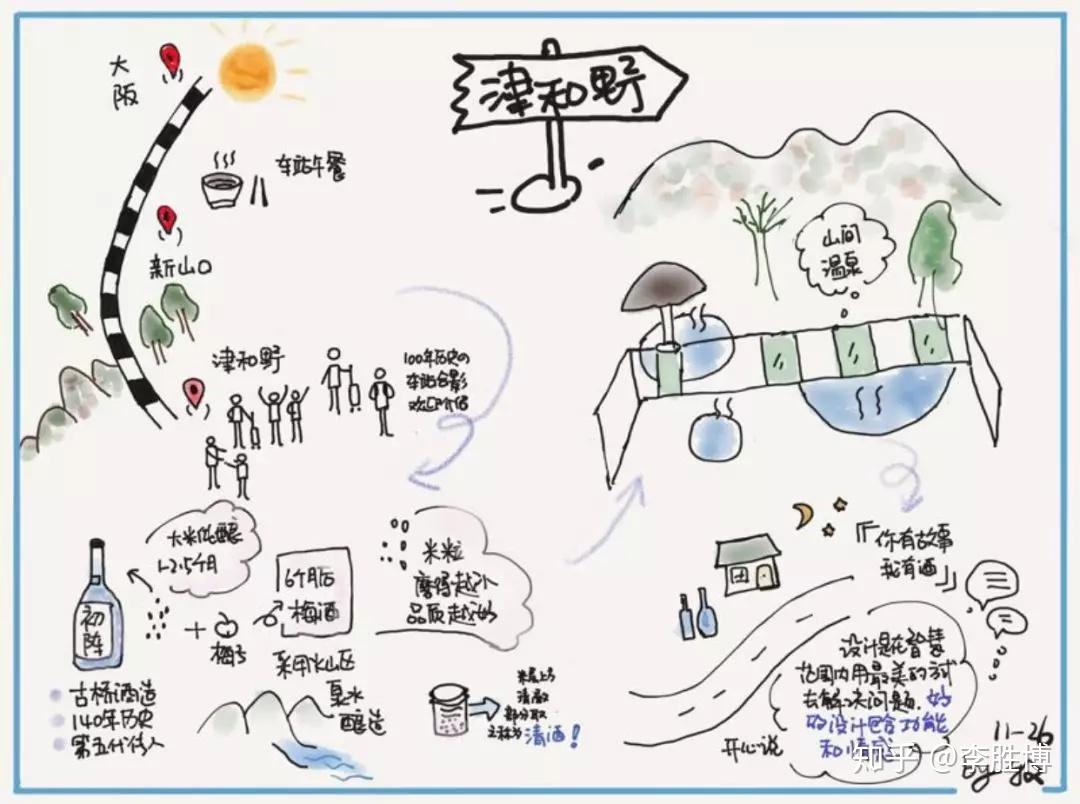 津和野
大
阪
车站午餐
新山口
津和野
100年历史の
车站合影
山间
温泉
大米低酿
1-2.5个月
初
阵
+
梅子
6个月后
梅酒
采用火山区
泉水
酿造
米粒
磨得越小
品质越好
古桥酒造
140年历史
第五代传人
米在上与
清液
部分取
清酒!
『你有故事
我有酒』
开心说
设计是在智慧
范围内用最美的方式
去解决问题.好
的设计包含功能
和情感
11-26
By
知乎 @李胜博